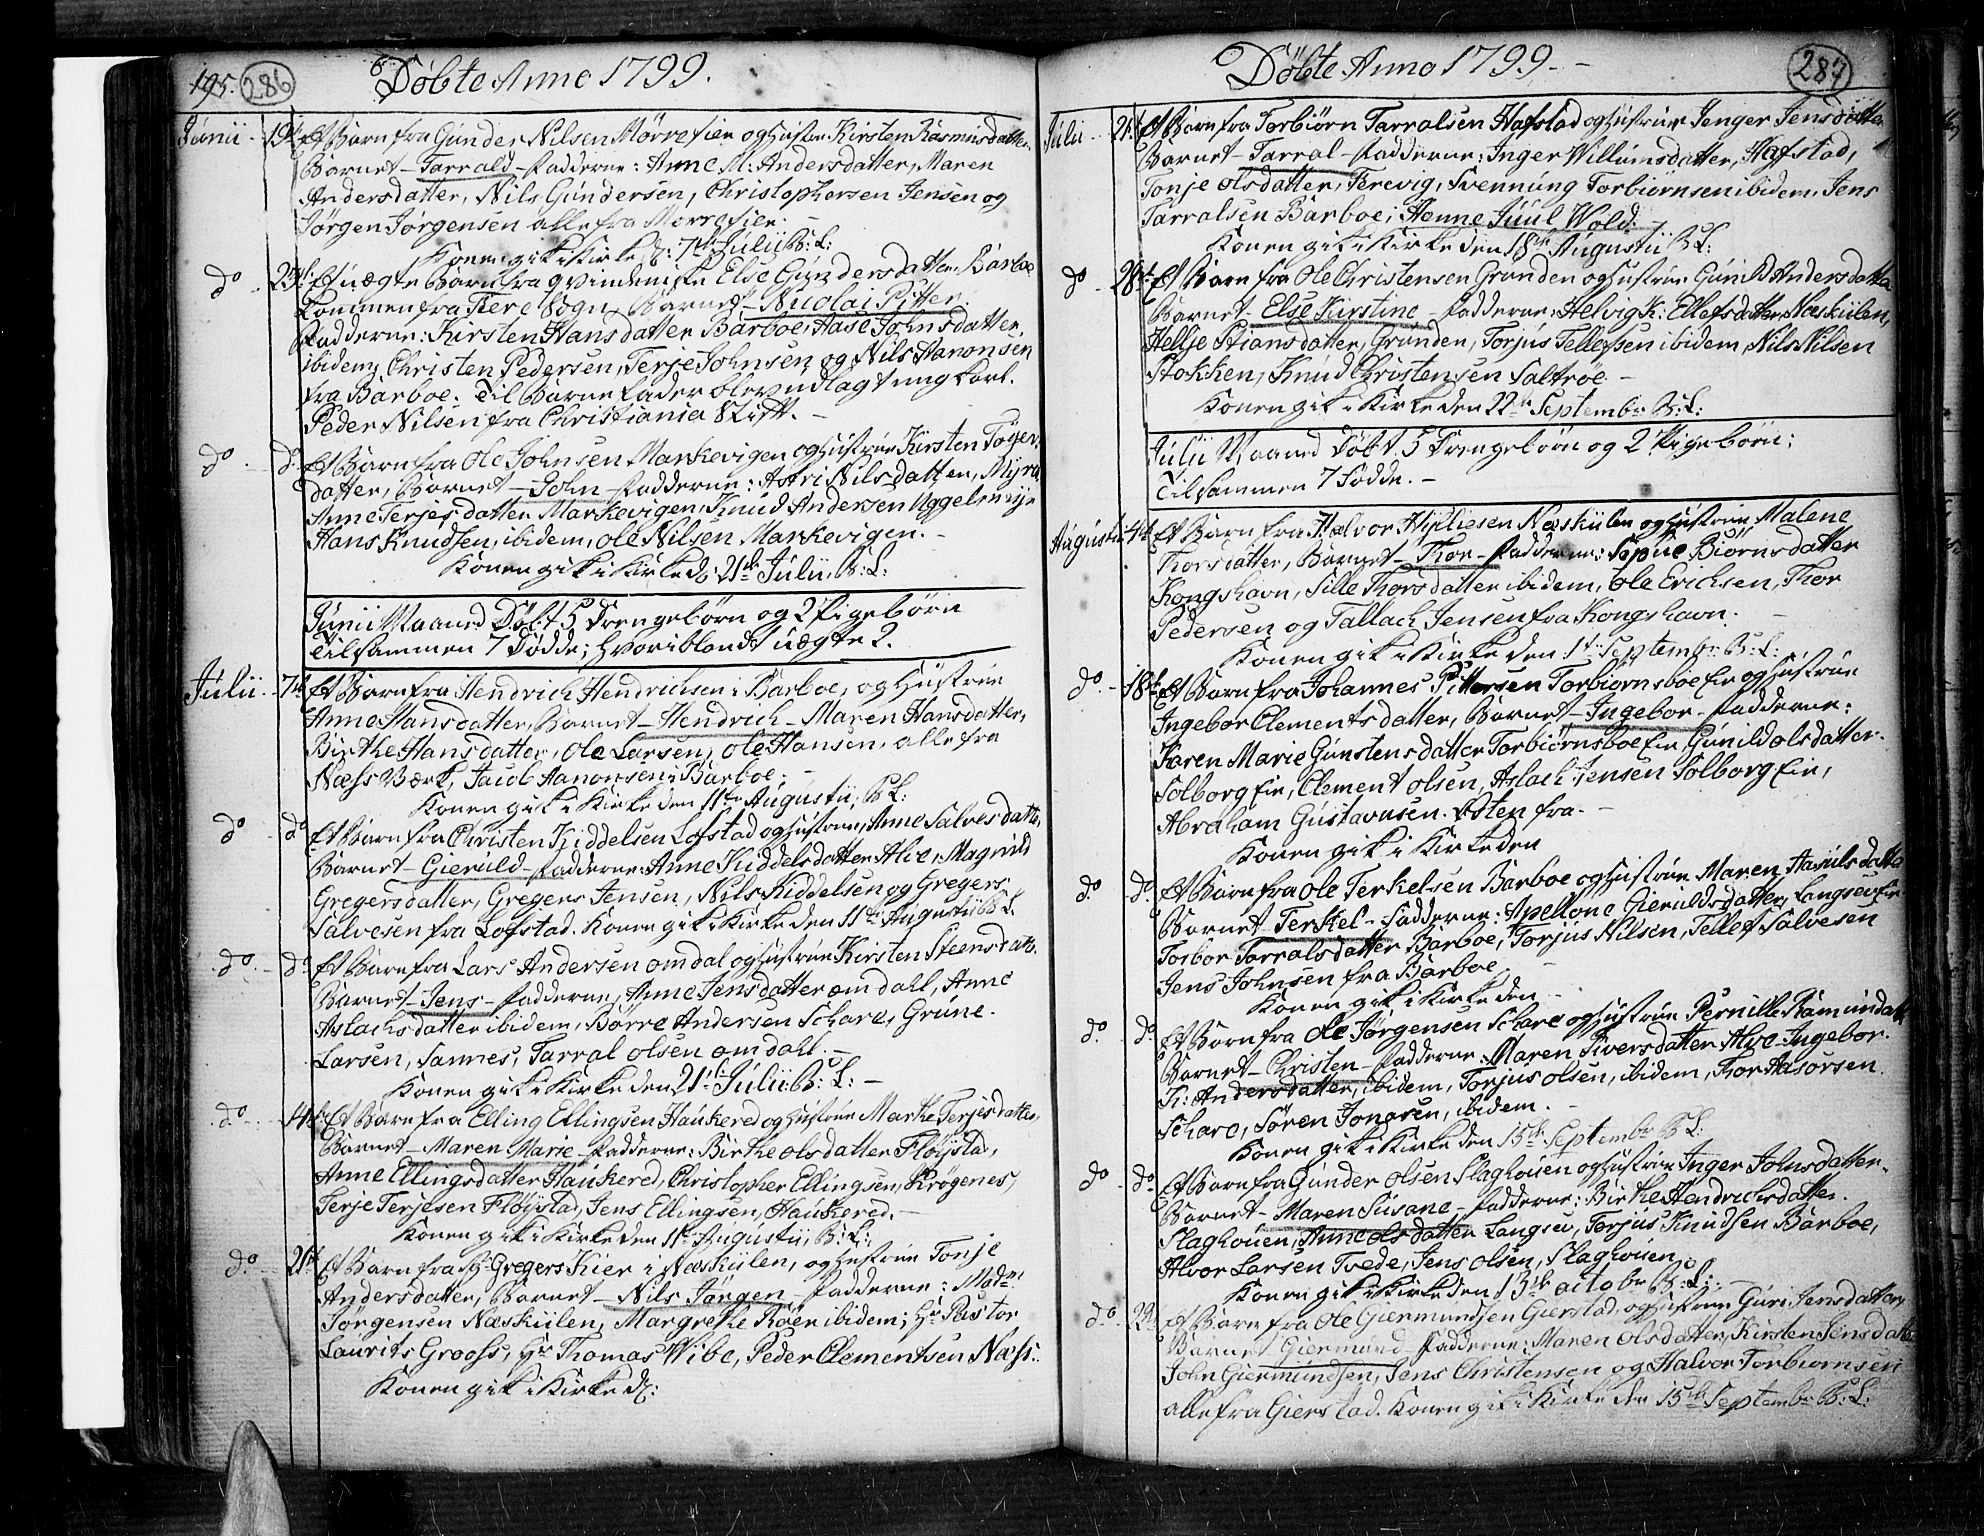 195. 286 Döbte Anno 1799.
Junii 19de Et Barn fra Gunder Nilsen Mörrefier og Hustrue Kirsten Rasmusdatter.
Barnet - Tarrald - Fadderne: Anne M: Andersdatter, Maren
Andersdatter, Nils Gundersen, Christophersen Jensen og
Jörgen Jörgensen alle fra Morrefier. -
Konen gik i Kirke d: 7de Julii B: L:
do 23d: Et uægte Barn fra qvindemske Else Gundersdatter Barboe
kommen fra Fiere Sogn, Barnet - Nicolai Pitter.
Fadderne: Kirsten Hansdatter Barboe, Aase Johnsdatter,
ibidem, Christen Pedersen, Terje Johnsen, og Nils Hanonsen
fra Barboe. Til Barne Fader blev udlagt ung karl.
Peder Nilsen fra Christiania Stift. -
do d: Et Barn fra Ole Johnsen Markevigen og Hustrue Kirsten Töger
datter, Barnet - John - Fadderne: Astri Nilsdatter, Myra
Anne Terjesdatter Markevigen, Knud Andersen Uggelemyr
Hans Knudsen, ibidem, Ole Nilsen Markevigen. -
Konen gik i Kirke d: 21de Julii, B: L:
Junii Maaned Döbt 5 Drengebörn og 2 Pigebörn
Tilsammen 7 Födde; hvoriblandt uægte 2.
Julii 7de Et Barn fra Hendrich Hendrichsen i Barboe, og Hustrue
Anne Hansdatter, Barnet - Hendrich - Maren Hansdatter,
Birthe Hansdatter, Ole Larsen, Ole Hansen, alle fra
Næss Værk, Jacob Aanonsen i Barboe. -
Konen gik i Kirke den 11te Augustii, B: L:
do do Et Barn fra Christen Kiddelsen Lofstad og Hustrue, Anne Salvesdatter,
Barnet - Gieruld - Fadderne: Anne Kiddelsdatter Alve, Magnild
Gregersdatter, Gregers Jensen, Nils Kiddelsen og Gregers
Salvesen fra Lofstad. Konen gik i Kirke den 11te Augustii B: L.
do. do Et Barn fra Lars Andersen omdal og Hustrue Kirsten Steensdatr.
Barnet - Jens - Fadderne, Anne Jensdatter omdahl, Anne
Aslachsdatter ibidem, Börre Andersen Schare, Grune.
Larsen, Sannes, Tarral Olsen omdahl. -
Konen gik i Kirke den 21de Julii: B: L: -
do. 14de Et Barn fra Elling Ellingsen Haukered og Hustrue Marthe Terjesdatter,
Barnet - Maren Marie - Fadderne: Birthe Olsdatter Flöjstad,
Anne Ellingsdatter Haukered, Christopher Ellingsen, Krögenes,
Terje Terjesen Flöjstad, Jens Ellingsen, Haukered. -
Konen gik i Kirke den 11te Augustii, B: L:
do. 21de Et Barn fra Gregers Kier i Næskiilen, og Hustrue Tonje
Andersdatter, Barnet - Nils Jörgen - Fadderne: Madm:
Jörgensen Næskiilen, Margrethe Röer ibidem; Hr Pastor
Laurits Grooss, Hr Thomas Wibe, Peder Clementsen Næss.
Konen gik i Kirke d:
Döbte Anno 1799. - 287
Julii 21de Et Barn fra Torbiörn Tarralsen Hafstad og Hustrue Jenger Jensdatter
Barnet - Tarral - Fadderne: Inger Willumsdatter, Hafstad,
Tonje Olsdatter, Terevig, Svennung Torbiörnsen ibidem, Jens
Tarralsen Barboe; Hanne Juul Wold.
Konen gik i Kirke den 18de Augustii B: L:
do 28de Et Barn fra Ole Christensen Grunden og Hustrue Gunild Andersdatter
Barnet - Else Kirstine - Fadderne: Helvig K: Ellefsdatter Næskiilen,
Hellje Stiansdatter, Grunden, Torjus Tellefsen ibidem, Nils Nilsen
Stokken, Knud Christensen Saltröe -
Konen gik i Kirke den 22de Septembr B: L:
Julii Maaned Döbt 5 Drengebörn og 2 Pigebörn;
Tilsammen 7 Födde. -
Augustii 4de Et Barn fra Halvor Nipliesen Næskiilen og Hustrue Malene
Thorsdatter, Barnet - Thor - Fadderne: Sophie Biörnsdatter
Kongshavn, Sille Thorsdatter ibidem, Ole Erichsen, Thor
Pedersen og Tallach Jensen fra Kongshavn. -
Konen gik i Kirke den: 1te Septembr: B: L:
do. 18de Et Barn fra Johannes Pittersen Torbiornsboefier og Hustrue
Ingebor Clementsdatter, Barnet - Ingebor - Fadderne:
Karen Marie Gunstensdatter Torbiörnsboefier, Gunild Olsdatter.
Solborgfier, Clement Olsen, Aslach Jensen Solborgfier,
Abraham Gustavusen. Osten fra. -
Konen gik i Kirke den
d: do: Et Barn fra Ole Terkelsen Barboe og Hustrue Maren Hansdatter
Barnet - Terkel - Fadderne: Apellone Gieruldsdatter Langsevfier
Torbor Tarralsdatter Barboe, Torjus Nilsen, Tellef Salvesen
Jens Johnsen fra Barboe. -
Konen gik i Kirke den -
do. do: Et Barn fra Ole Jörgensen Schare og Hustrue Pernille Ramundatr
Barnet - Christen - Fadderne: Maren Siversdatter Alve, Ingebor.
K: Andersdatter, ibidem, Torjus Olsen, ibidem, Thor Aasorsen.
Schare, Sören Jonasen, ibidem. -
Konen gik i Kirke den 15de Septembr B: L:
do do: Et Barn fra Gunder Olsen Slaghouen og Hustrue Inger Johnsdatter.
Barnet - Maren Susane - Fadderne: Birthe Hendrichsdatter.
Slaghouen, Anne Olsdatter Langsev, Torjus Knudsen Barboe,
Alvor Larsen Tvede, Jens Olsen, Slaghouen, -
Konen gik i Kirke den 13de Octobr B: L: -
do. 29de Et Barn fra Ole Giermundsen Gierstad og Hustrue Guri Jensdatter,
Barnet Giermund - Fadderne: Maren Olsdatter, Kirsten Jensdatter
John Giermundsen, Jens Christensen og Halvor Torbiornsen
alle fra Gierstad. Konen gik i Kirke den 15de Septembr B: L: